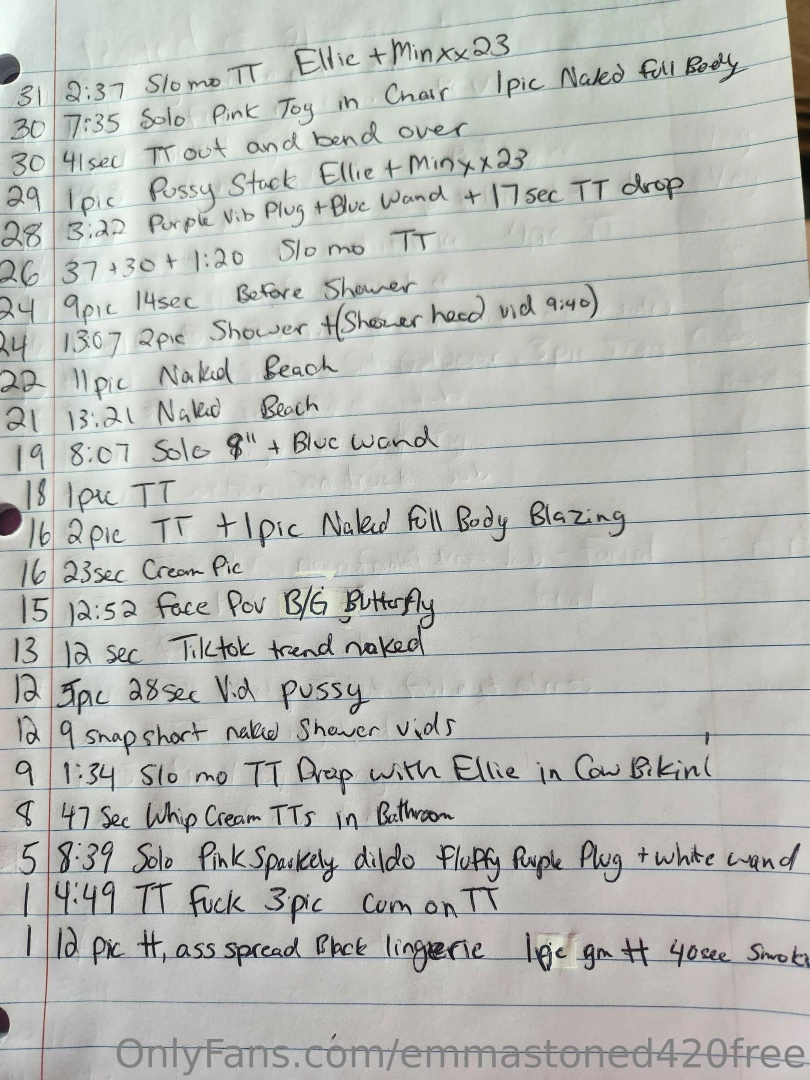 31 2:37 Slo mo TT Ellie + Minxx23
30 7:35 Solo Pink Toy in Chair 1pic Naked full Body
30 41sec TT out and bend over
29 1pic Pussy Stack Ellie + Minxx23
28 3:22 Purple Vib Plug + Blue Wand + 17sec TT drop
26 37+30+1:20 Slo mo TT
24 9pic 14sec Before Shower
24 13:07 2pic Shower +(Shower head vid 9:40)
22 11pic Naked Beach
21 13:21 Naked Beach
19 8:07 Solo 8" + Blue wand
18 1pic TT
16 2pic TT +1pic Naked Full Body Blazing
16 23sec Cream Pic
15 12:52 face Pov B/G Butterfly
13 12 sec Tiktok trend naked
12 5pic 28sec Vid pussy
12 9 snap short naked Shower vids
9 1:34 Slo mo TT Drop with Ellie in Cow Bikini
8 47 Sec Whip Cream TTs in Bathroom
5 8:39 Solo Pink Sparkely dildo fluffy Purple Plug + white wand
1 4:49 TT fuck 3pic cum on TT
1 12 pic tt, ass spread Black lingerie 1pic gm tt 40sec Smoki
OnlyFans.com/emmastoned420free